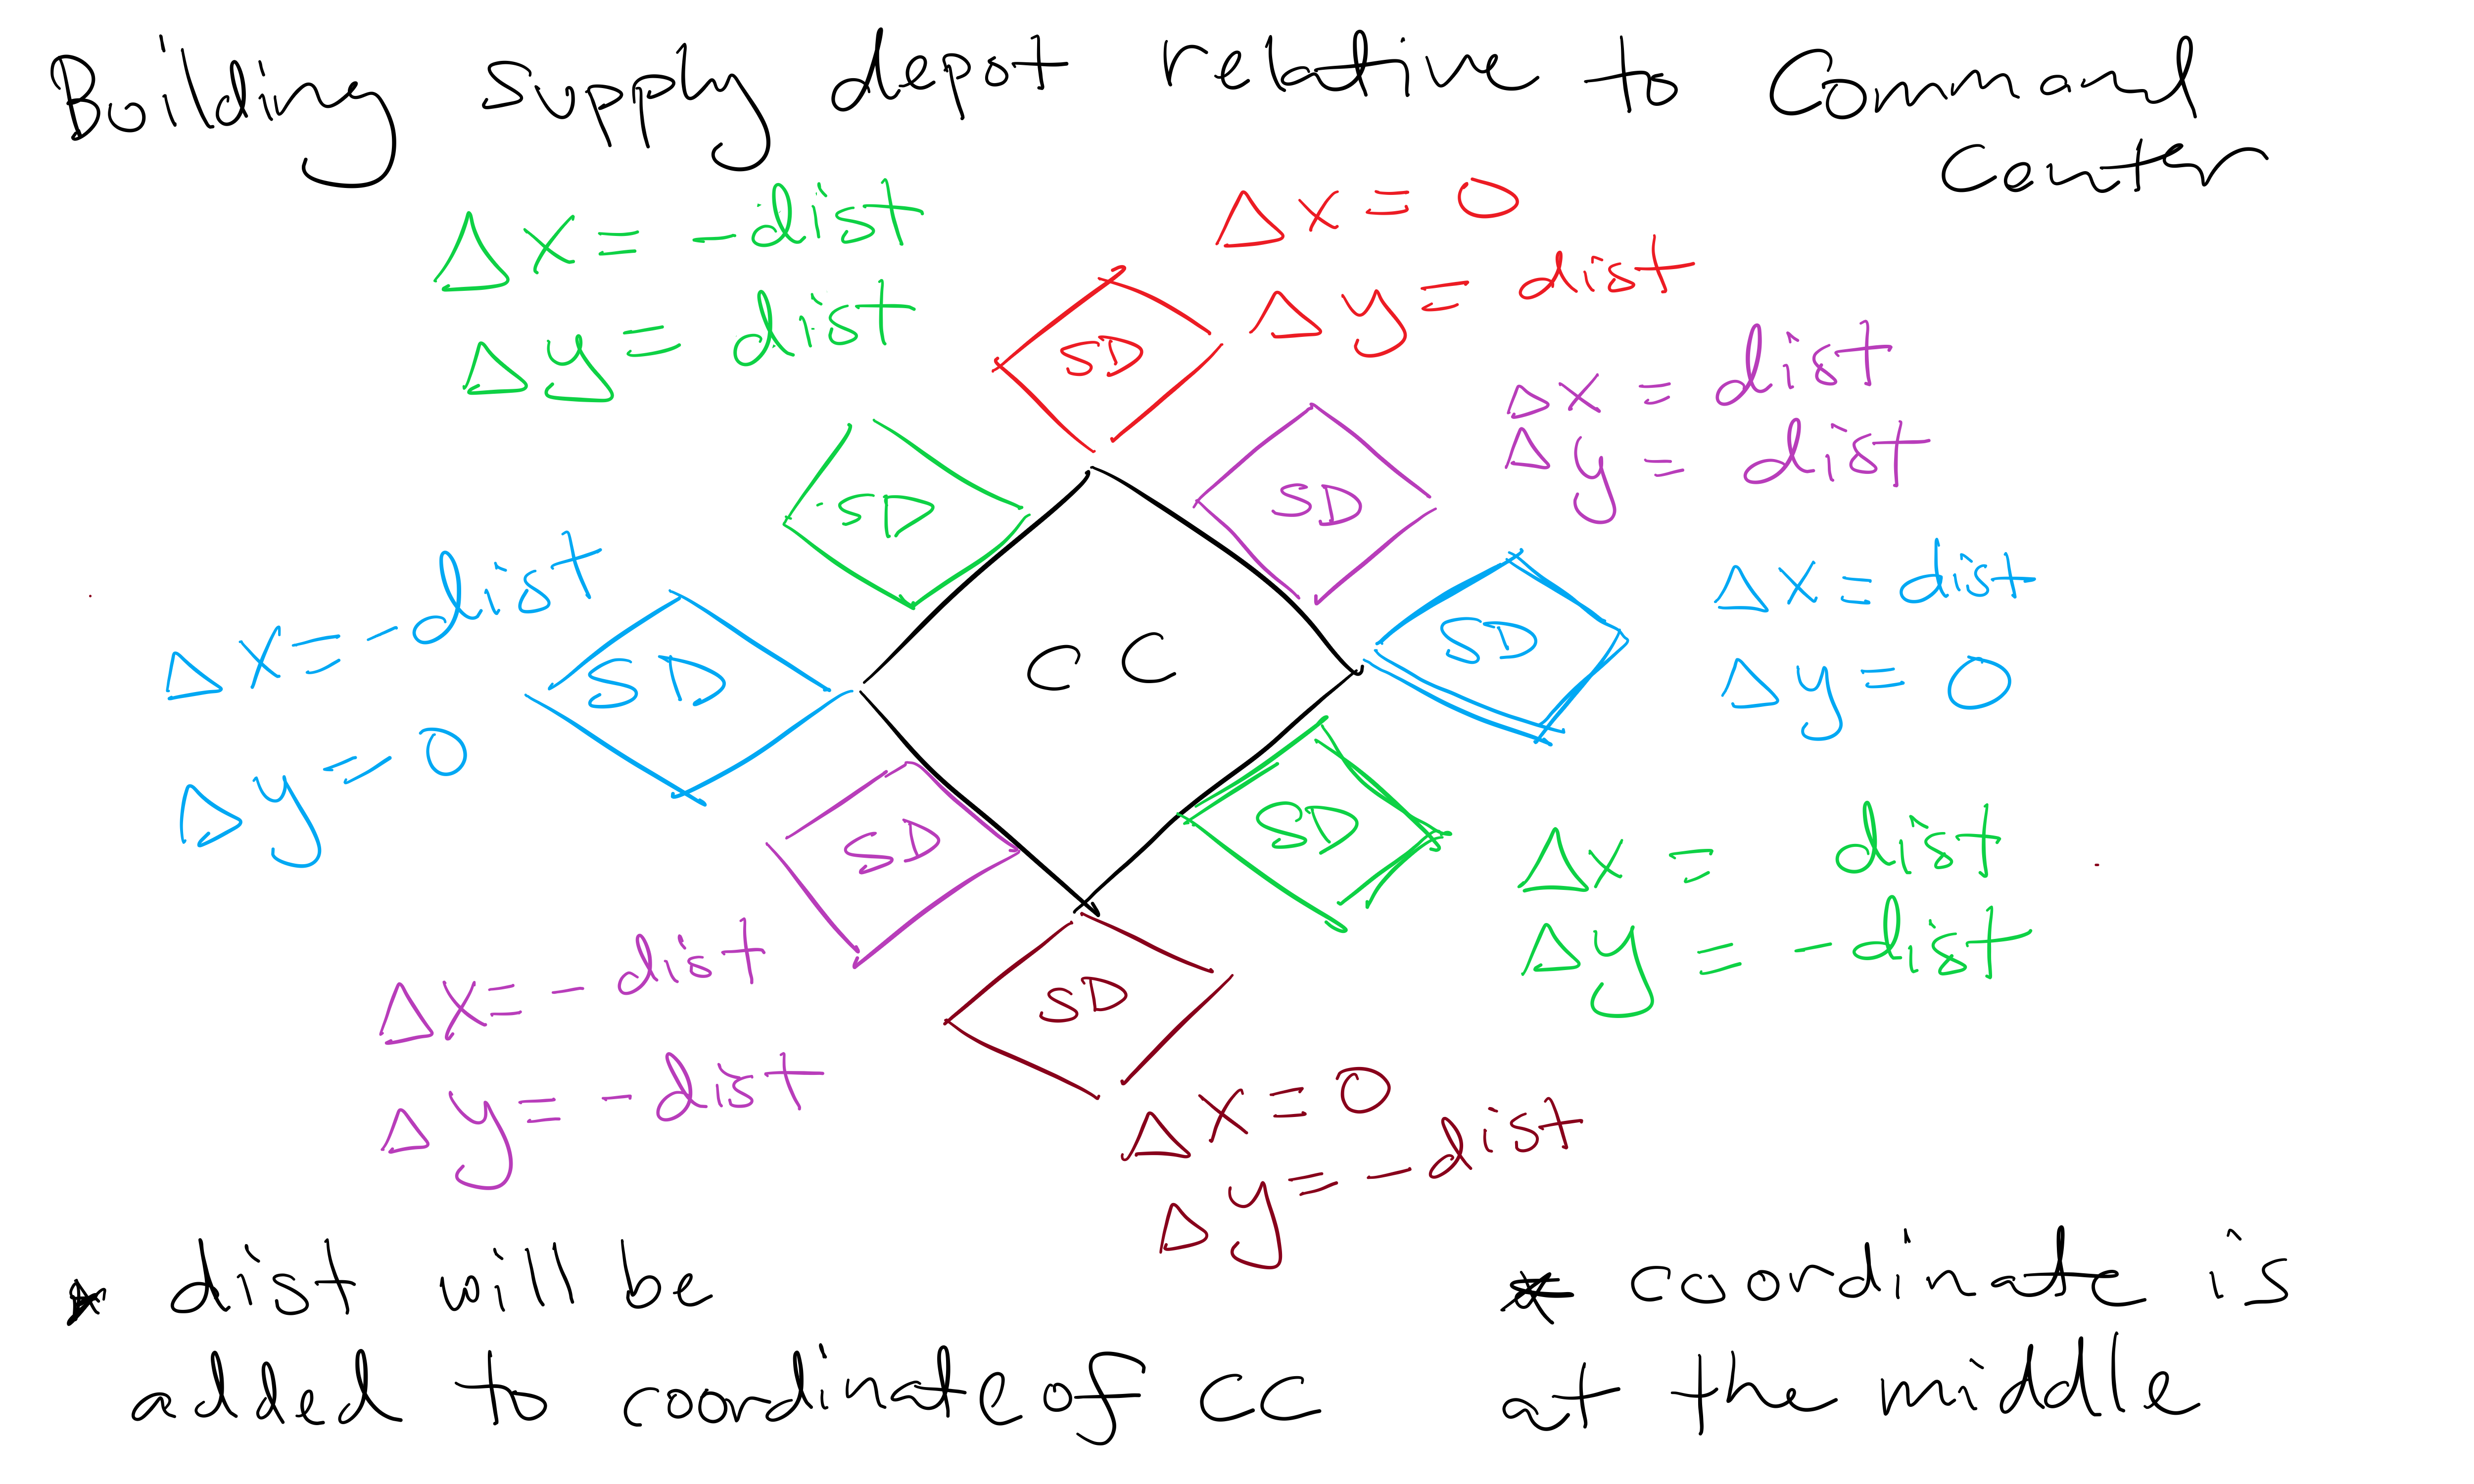 Building supply depot relative to Command
Center
Δx = -dist
Δy = dist
Δx = 0
Δy = dist
SD
Δx = dist
Δy = dist
SD
SD
Δx = -dist
Δy = 0
SD
CC
SD
Δx = dist
Δy = 0
SD
SD
Δx = dist
Δy = -dist
Δx = -dist
Δy = -dist
SD
Δx = 0
Δy = -dist
* dist will be
added to coordinate of CC
* coordinate is
at the middle